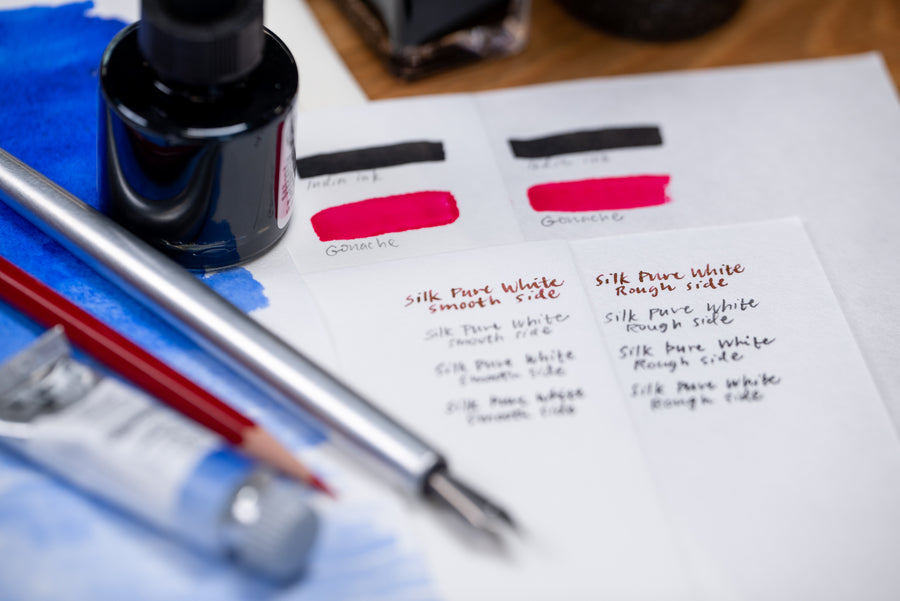 India ink
Gouache
India ink
Gouache
Silk Pure White
smooth side
Silk Pure White
smooth side
Silk Pure White
smooth side
Silk Pure White
smooth side
Silk Pure White
Rough side
Silk Pure White
Rough side
Silk Pure White
Rough side
Silk Pure White
Rough side